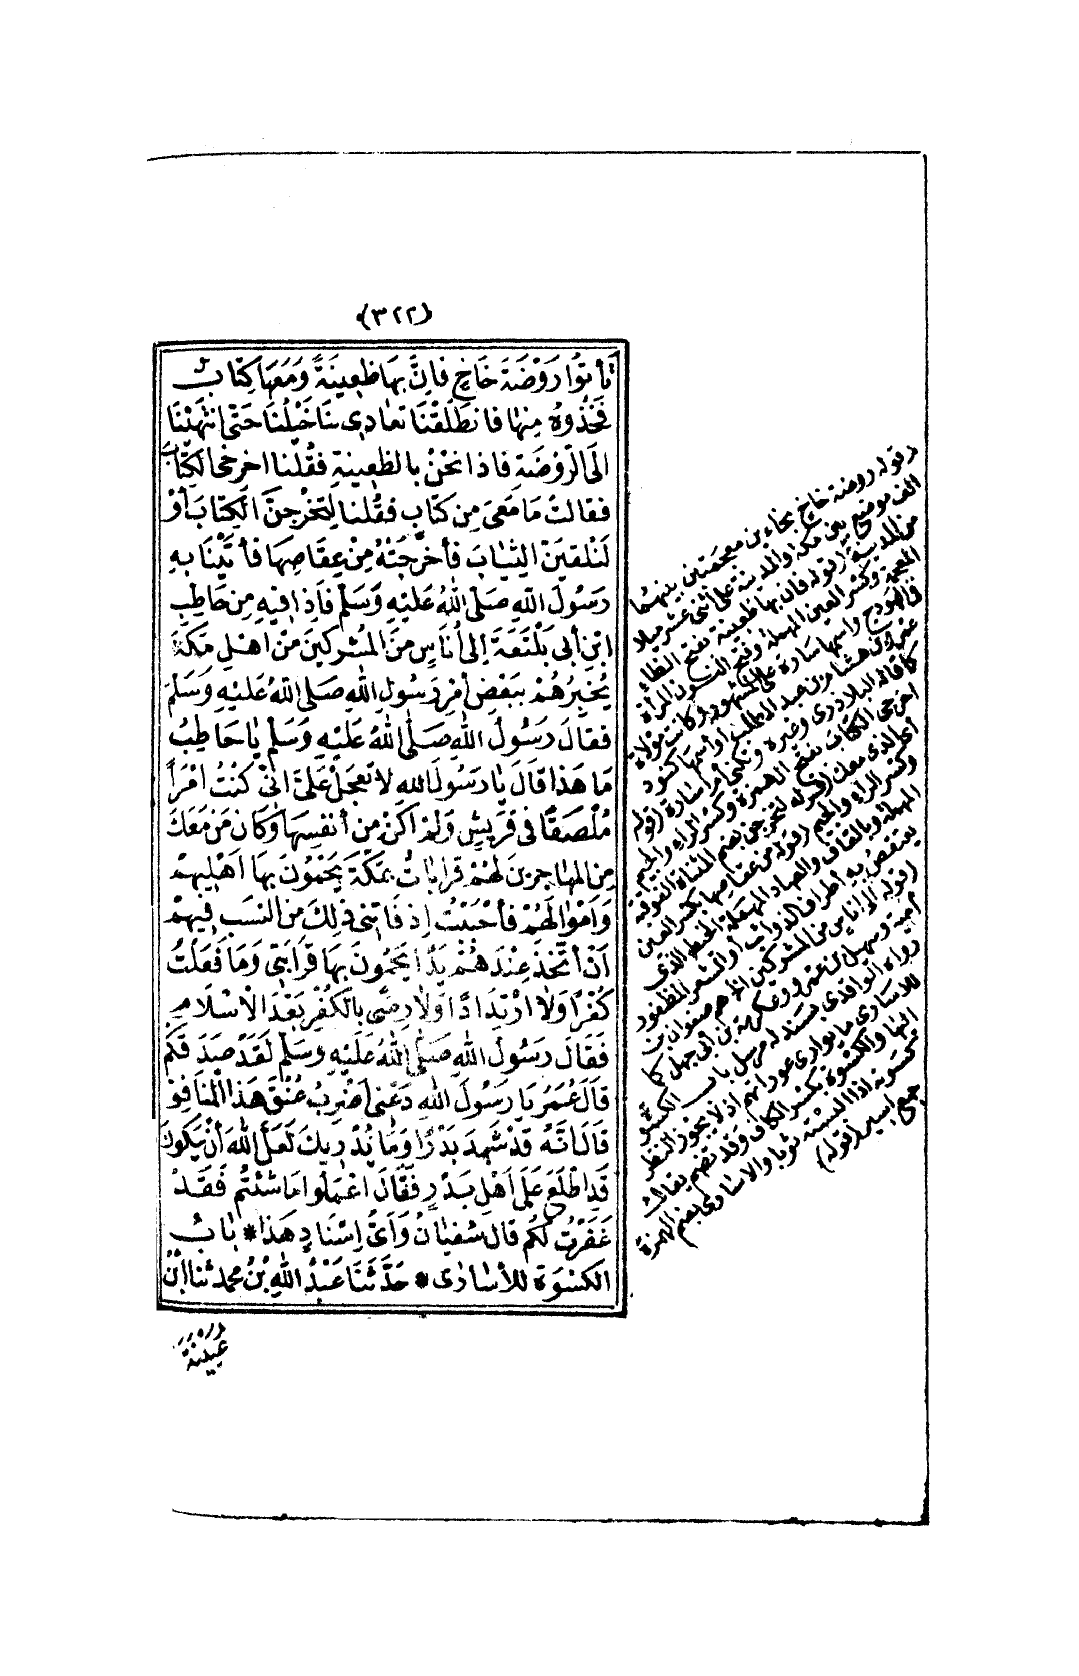 (٣٢٢)
تَأتُوا رَوْضَةَ خَاخٍ فَاِنَّ بِهَا ظَعِينَةً وَمَعَهَا كِتَابٌ
فَخُذُوهُ مِنْهَا فَانْطَلَقْنَا تَعَادٰى بِنَا خَيْلُنَا حَتّٰى انْتَهَيْنَا
اِلَى الرَّوْضَةِ فَاِذَا نَحْنُ بِالظَّعِينَةِ فَقُلْنَا اَخْرِجِى الْكِتَابَ
فَقَالَتْ مَا مَعِىَ مِنْ كِتَابٍ فَقُلْنَا لَتُخْرِجِنَّ الْكِتَابَ أَوْ
لَنُلْقِيَنَّ الثِّيَابَ فَأَخْرَجَتْهُ مِنْ عِقَاصِهَا فَأَتَيْنَا بِهِ
رَسُولَ اللّٰهِ صَلَّى اللّٰهُ عَلَيْهِ وَسَلَّمَ فَاِذَا فِيهِ مِنْ حَاطِبِ
ابْنِ أَبِى بَلْتَعَةَ إِلَى أُنَاسٍ مِنَ الْمُشْرِكِينَ مِنْ اَهْلِ مَكَّةَ
يُخْبِرُهُمْ بِبَعْضِ أَمْرِ رَسُولِ اللّٰهِ صَلَّى اللّٰهُ عَلَيْهِ وَسَلَّمَ
فَقَالَ رَسُولُ اللّٰهِ صَلَّى اللّٰهُ عَلَيْهِ وَسَلَّمَ يَا حَاطِبُ
مَا هَذَا قَالَ يَا رَسُولَ اللّٰهِ لَا تَعْجَلْ عَلَىَّ اِنِّى كُنْتُ امْرَأً
مُلْصَقًا فِى قُرَيْشٍ وَلَمْ اَكُنْ مِنْ أَنْفُسِهَا وَكَانَ مَنْ مَعَكَ
مِنَ الْمُهَاجِرِينَ لَهُمْ قَرَابَاتٌ بِمَكَّةَ يَحْمُونَ بِهَا اَهْلِيهِمْ
وَاَمْوَالَهُمْ فَأَحْبَبْتُ إِذْ فَاتَنِى ذٰلِكَ مِنَ النَّسَبِ فِيهِمْ
اَنْ أَتَّخِذَ عِنْدَهُمْ يَدًا يَحْمُونَ بِهَا قَرَابَتِى وَمَا فَعَلْتُ
كُفْرًا وَلَا ارْتِدَادًا وَلَا رِضًى بِالْكُفْرِ بَعْدَ الْاِسْلَامِ
فَقَالَ رَسُولُ اللّٰهِ صَلَّى اللّٰهُ عَلَيْهِ وَسَلَّمَ لَقَدْ صَدَقَكُمْ
قَالَ عُمَرُ يَا رَسُولَ اللّٰهِ دَعْنِى اَضْرِبْ عُنُقَ هَذَا الْمُنَافِقِ
قَالَ اِنَّهُ قَدْ شَهِدَ بَدْرًا وَمَا يُدْرِيكَ لَعَلَّ اللّٰهَ أَنْ يَكُونَ
قَدِ اطَّلَعَ عَلَى اَهْلِ بَدْرٍ فَقَالَ اعْمَلُوا مَا شِئْتُمْ فَقَدْ
غَفَرْتُ لَكُمْ قَالَ سُفْيَانُ وَأَىُّ اِسْنَادٍ هَذَا * بَابُ
الْكِسْوَةِ لِلْأُسَارَى * حَدَّثَنَا عَبْدُ اللّٰهِ بْنُ مُحَمَّدٍ ثَنَا ابْنُ
عُيَيْنَةَ
(قوله روضة خاخ بخاءين معجمتين بينهما
الف موضع بين مكة والمدينة على اثنى عشر ميلا
من المدينة (قوله فان بها ظعينة بفتح الظاء
المعجمة وكسر العين المهملة وفتح النون المرأة
فى الهودج واسمها سارة على المشهور وكانت مولاة
عمرو بن هشام بن عبد المطلب او اسمها كنود
كما قاله البلاذرى وغيره وتكنى أم سارة (قوله
اخرجى الكتاب بفتح الهمزة وكسر الراء والجيم
أى الذى معك (قوله لتخرجن بضم المثناة الفوقية
وكسر الراء والجيم (قوله من عقاصها بكسر العين
المهملة وبالقاف والصاد المهملة الخيط الذى
يعتقص به أطراف الذوائب أو الشعر المظفور
(قوله الى اناس من المشركين الخ هم صفوان بن
أمية وسهيل بن عمرو وعكرمة بن ابى جهل كما
رواه الواقدى بسند له مرسل باب الكسوة
للاسارى ما يوارى عوراتهم اذ لا يجوز النظر
اليها والكسوة بكسر الكاف وقد تضم يقال
كسوته اذا البسته ثوبا والاسارى بضم الهمزة
جمع اسير (قوله)